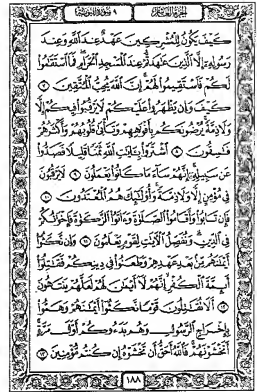 الجزء العاشر
٩ سورة التوبة
كَيْفَ يَكُونُ لِلْمُشْرِكِينَ عَهْدٌ عِندَ اللَّهِ وَعِندَ
رَسُولِهِۦٓ إِلَّا الَّذِينَ عَٰهَدتُّمْ عِندَ الْمَسْجِدِ الْحَرَامِ فَمَا اسْتَقَٰمُوا
لَكُمْ فَاسْتَقِيمُوا لَهُمْ إِنَّ اللَّهَ يُحِبُّ الْمُتَّقِينَ ٧
كَيْفَ وَإِن يَظْهَرُوا عَلَيْكُمْ لَا يَرْقُبُوا فِيكُمْ إِلًّا
وَلَا ذِمَّةً يُرْضُونَكُم بِأَفْوَٰهِهِمْ وَتَأْبَىٰ قُلُوبُهُمْ وَأَكْثَرُهُمْ
فَٰسِقُونَ ٨ اشْتَرَوْا بِـَٔايَٰتِ اللَّهِ ثَمَنًا قَلِيلًا فَصَدُّوا
عَن سَبِيلِهِۦٓ إِنَّهُمْ سَآءَ مَا كَانُوا يَعْمَلُونَ ٩ لَا يَرْقُبُونَ
فِى مُؤْمِنٍ إِلًّا وَلَا ذِمَّةً وَأُو۟لَٰٓئِكَ هُمُ الْمُعْتَدُونَ ١٠
فَإِن تَابُوا وَأَقَامُوا الصَّلَوٰةَ وَءَاتَوُا الزَّكَوٰةَ فَإِخْوَٰنُكُمْ
فِى الدِّينِ وَنُفَصِّلُ الْـَٔايَٰتِ لِقَوْمٍ يَعْلَمُونَ ١١ وَإِن نَّكَثُوٓا
أَيْمَٰنَهُم مِّنۢ بَعْدِ عَهْدِهِمْ وَطَعَنُوا فِى دِينِكُمْ فَقَٰتِلُوٓا
أَئِمَّةَ الْكُفْرِ إِنَّهُمْ لَآ أَيْمَٰنَ لَهُمْ لَعَلَّهُمْ يَنتَهُونَ
١٢ أَلَا تُقَٰتِلُونَ قَوْمًا نَّكَثُوٓا أَيْمَٰنَهُمْ وَهَمُّوا
بِإِخْرَاجِ الرَّسُولِ وَهُم بَدَءُوكُمْ أَوَّلَ مَرَّةٍ
أَتَخْشَوْنَهُمْ فَاللَّهُ أَحَقُّ أَن تَخْشَوْهُ إِن كُنتُم مُّؤْمِنِينَ ١٣
١٨٨